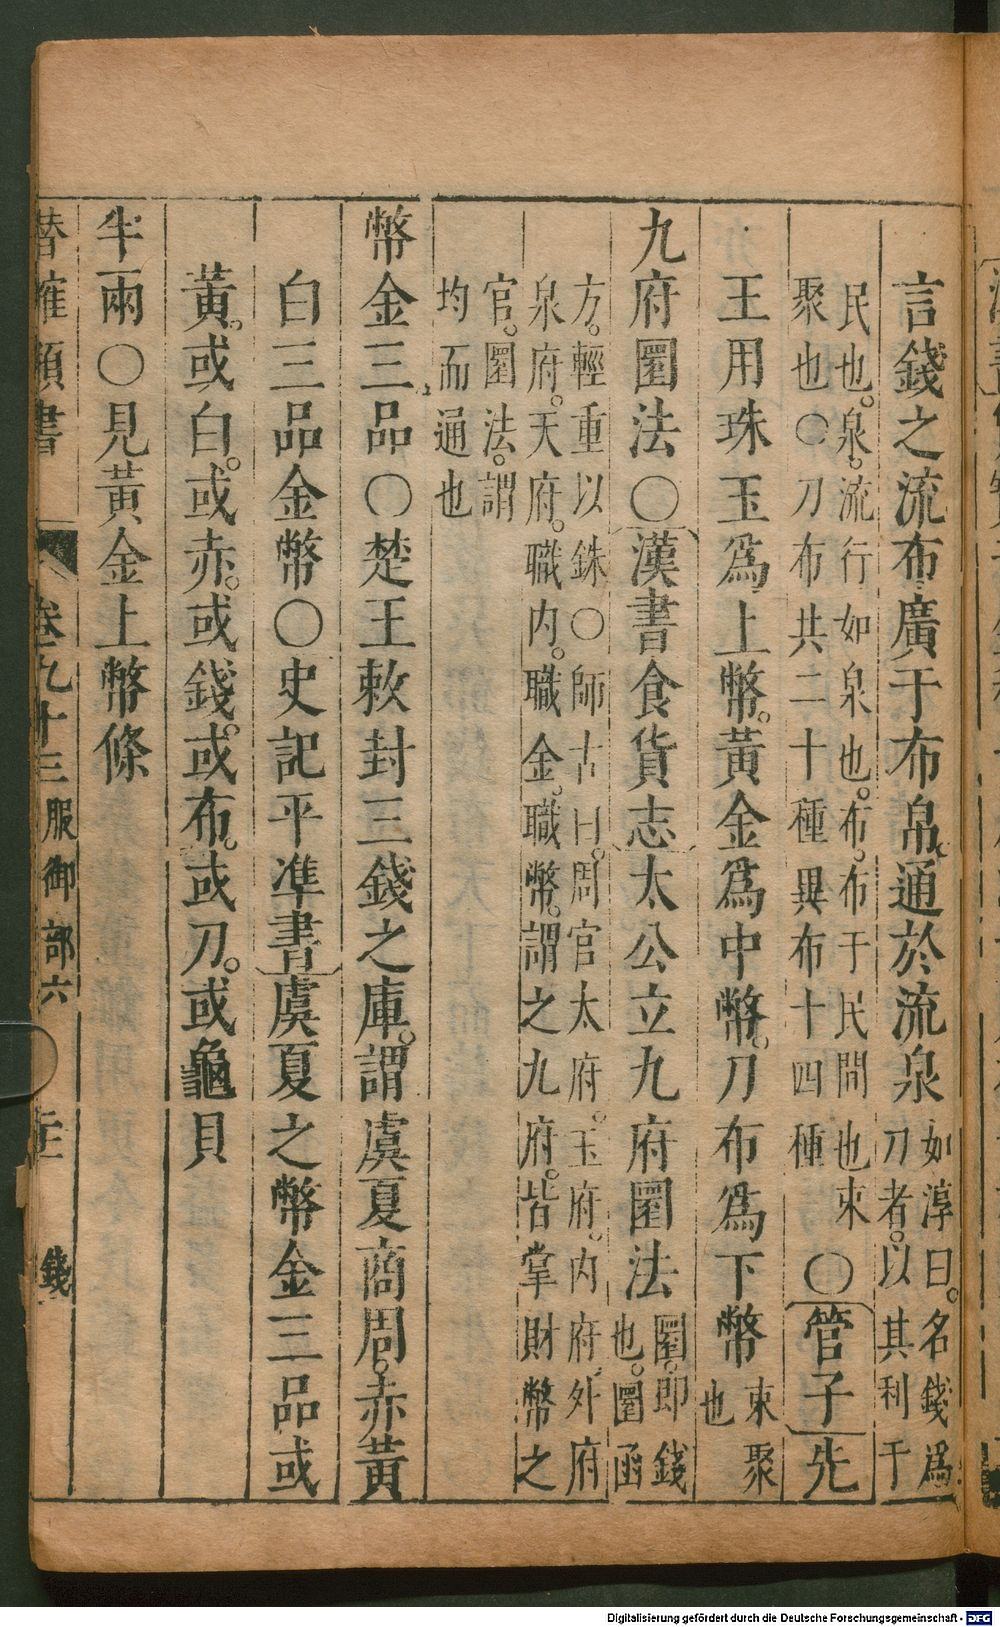 言錢之流布廣于布帛通於流泉如淳曰。名錢爲刀者。以其利于
民也。泉。流行如泉也。布。布于民間也束聚也〇刀布共二十種異布十四種〇管子先
王用珠玉爲上幣。黃金爲中幣。刀布爲下幣束聚也
九府圜法〇漢書食貨志太公立九府圜法圜。即錢也。圜函
方。輕重以銖〇師古曰。周官太府。玉府。内府。外府泉府。天府。職内。職金。職幣。謂之九府。皆掌財幣之
官。圜法。謂均而通也
幣金三品〇楚王敕封三錢之庫。謂虞夏商周。赤黃
白三品金幣〇史記平準書虞夏之幣金三品或
黃。或白。或赤。或錢。或布。或刀。或龜貝
半兩〇見黃金上幣條
卷九十三 服御部六 錢
Digitalisierung gefördert durch die Deutsche Forschungsgemeinschaft - DFG